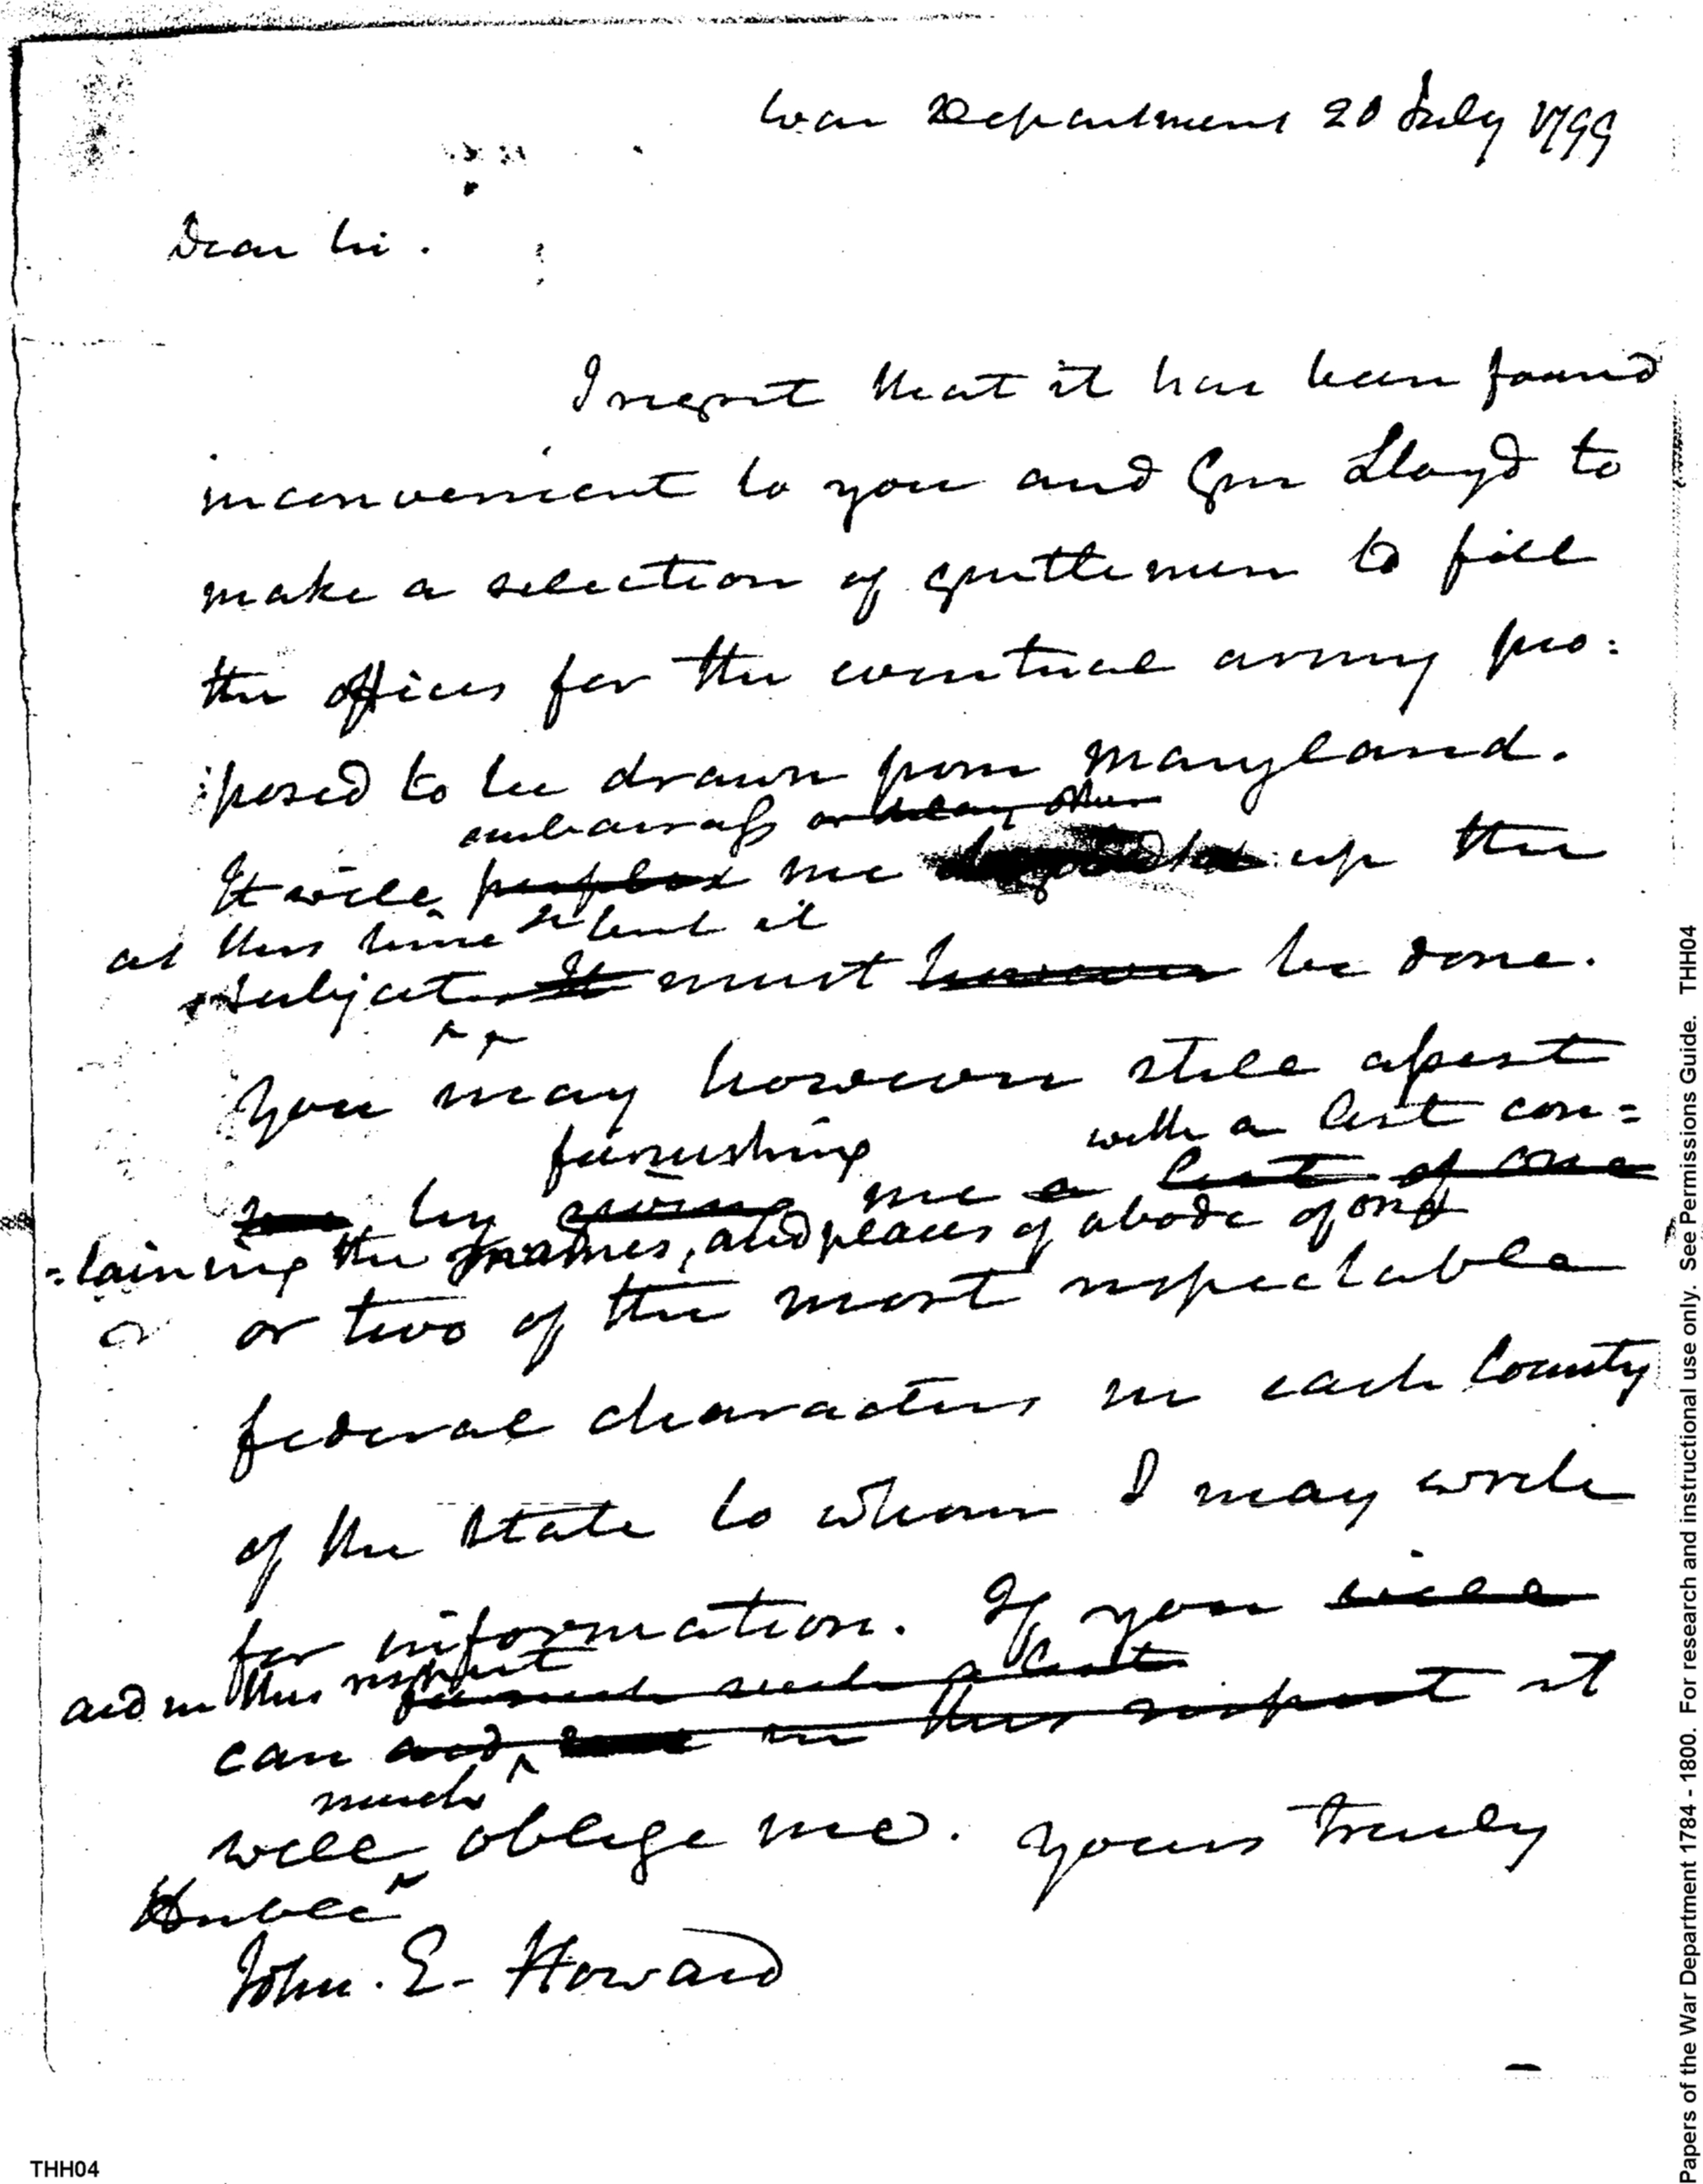 War Department 20 July 1799
Dear Sir.
I regret that it has been found
inconvenient to you and Gen Lloyd to
make a selection of gentlemen to fill
the offices for the eventual army pro:
:posed to be drawn from Maryland.
embarrass or delay
It will perplex me up the
at this time but it
subject. It must however be done.
You may however still assist
furnishing with a list con=
me by giving me a list of one
=taining the names, and places of abode of one
or or two of the most respectable
federal characters in each County
of the State to whom I may write
for information. If you will
aid in this respect furnish such a list
can aid, in this respect it
much
will oblige me. yours truly
Honble
John. E. Howard
Papers of the War Department 1784 - 1800. For research and instructional use only. See Permissions Guide. THH04
THH04